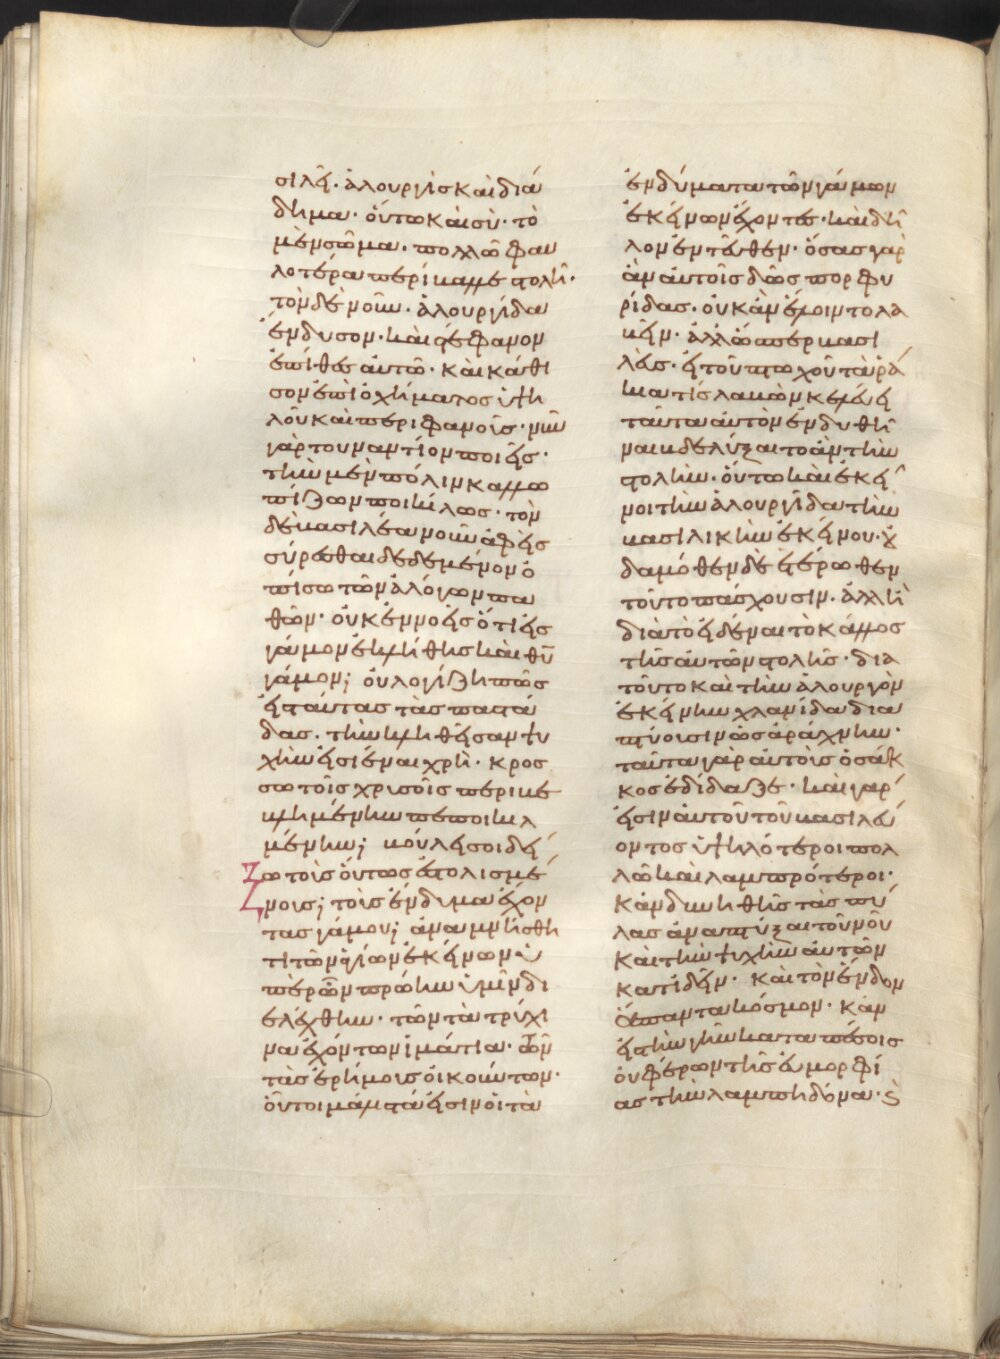 σιλεῖ· ἁλουργὶς καὶ διά
δημα· οὕτω καὶ σὺ· τὸ
μὲν σῶμα· πολλῶ φαυ
λοτέρα περίβαλλε στολῆ·
τὸν δὲ νοῦν· ἁλουργίδα
ἔνδυσον· καὶ στέφανον
ἐπίθες αὐτῶ· καὶ κάθι
σον ἐπὶ ὀχήματος ὑψη
λοῦ καὶ περιφανοῦς· νῦν
γὰρ τουναντίον ποιεῖς·
τὴν μὲν πόλιν καλλω
πίζων ποικίλως· τὸν
δὲ βασιλέα νοῦν ἀφεὶς
σύρεσθαι δεδεμένον ὀ
πίσω τῶν ἀλόγων πα
θῶν· οὐκ ἐννοεῖς ὅτι εἰς
γάμον ἐκλήθης καὶ θῦ
γάμον; οὐ λογίζη πῶς
εἰς ταύτας τὰς παστά
δας· τὴν κληθεῖσαν ψυ
χὴν εἰσιέναι χρὴ· κροσ
σωτοῖς χρυσοῖς περιβε
βλημένην πεποικιλ
μένην; βούλει σοι δεί
ξω τοὺς οὕτως ἐστολισμέ
νους; τοὺς ἔνδυμα ἔχον
τας γάμου; ἀναμνήσθη
τι τῶν ἁγίων ἐκείνων ὑ
πὲρ ὧν πρώην ὑμῖν δι
ελέχθην· τῶν τὰ τρίχι
να ἐχόντων ἱμάτια· τῶν
τὰς ἐρήμους οἰκούντων·
οὗτοι μάλιστά εἰσιν οἱ τὰ
ἐνδύματα τῶν γάμων
ἐκείνων ἔχοντες· καὶ δῆ
λον ἐντεῦθεν· ὅσας γὰρ
ἂν αὐτοῖς δῶς πορφυ
ρίδας· οὐκ ἂν ἕλοιντο λα
βεῖν· ἀλλ' ὥσπερ βασι
λεὺς· εἰ τοῦ πτωχοῦ τὰ ῥά
κια τίς λαβὼν κελεύει
ταῦτα αὐτὸν ἐνδυθῆ
ναι βδελύξαιτο ἂν τὴν
στολὴν· οὕτω καὶ ἐκεῖ
νοι τὴν ἁλουργίδα τὴν
βασιλικὴν ἐκείνου· οὐ
δαμόθεν δὲ ἑτέρωθεν
τοῦτο πάσχουσιν· ἀλλ' ἢ
διὰ τὸ εἰδέναι τὸ κάλλος
τῆς αὐτῶν στολῆς· δια
τοῦτο καὶ τὴν ἁλουργὸν
ἐκείνην χλαμίδα δια
πτύουσιν ὡς ἀράχνην·
ταῦτα γὰρ αὐτοὺς ὁ σάκ
κος ἐδίδαξε· καὶ γάρ
εἰσιν αὐτοῦ τοῦ βασιλεύ
οντος ὑψηλότεροι πολ
λῶ καὶ λαμπρότεροι·
κἂν δυνηθῆς τὰς πύ
λας ἀναπτύξαι τοῦ νοῦ
καὶ τὴν ψυχὴν αὐτῶν
κατιδεῖν· καὶ τὸν ἔνδον
ἅπαντα κόσμον· κἂν
εἰς τὴν γῆν καταπέσοις
οὐ φέρων τῆς εὐμορφί
ας τὴν λαμπηδόνα· καὶ